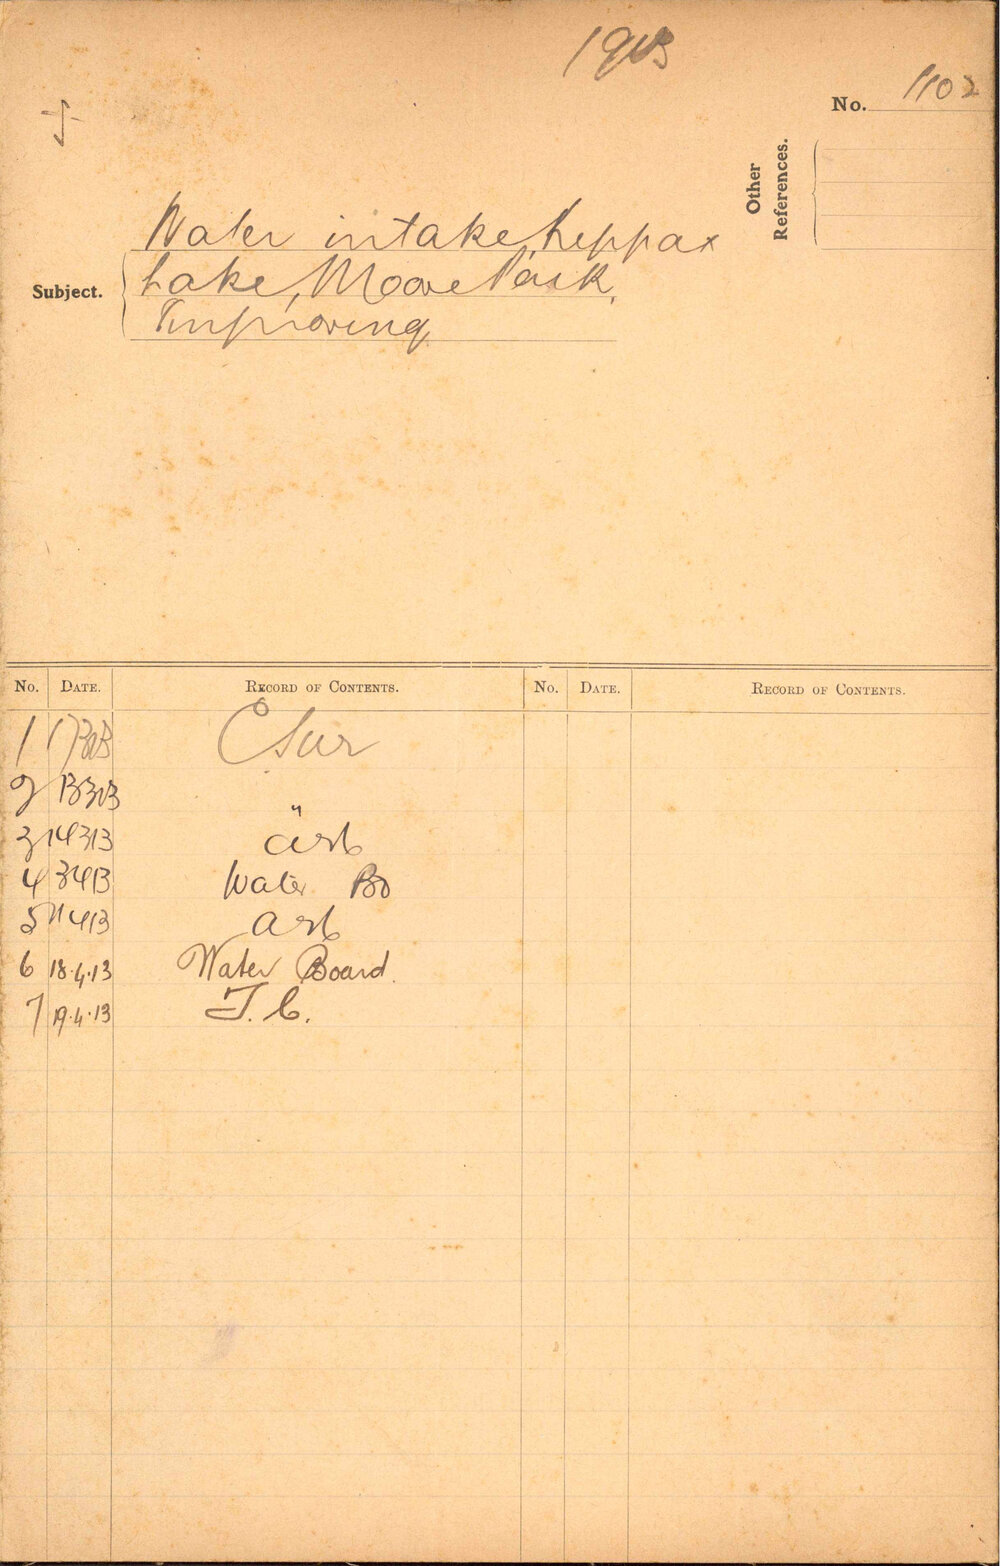 1913
No. 1102
Other References.
Subject.
Water intake, Keppax
Lake, Moore Park,
Improving
No. DATE. RECORD OF CONTENTS. No. DATE. RECORD OF CONTENTS.
1 17313 C Sur
2 13313 "
3 14313 asb
4 3413 Water Bd
5 11413 asb
6 18.4.13 Water Board.
7 19.4.13 T.C.